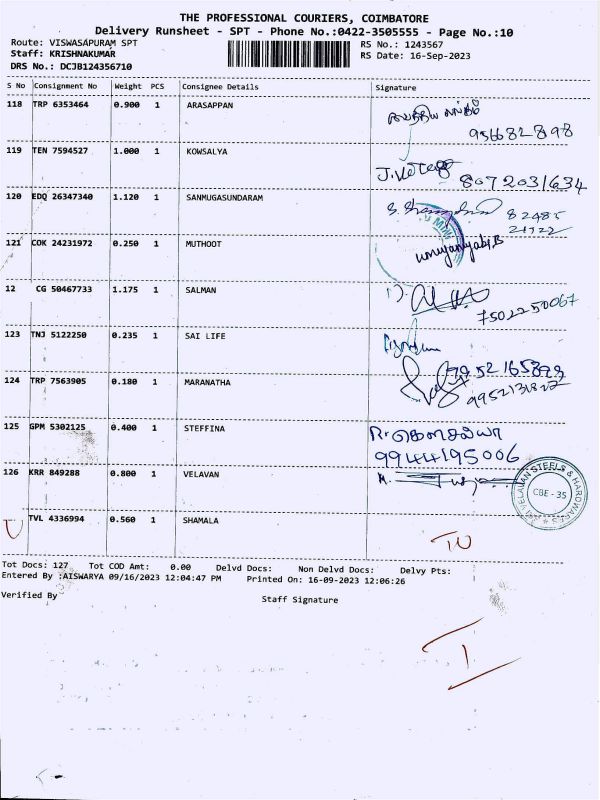 THE PROFESSIONAL COURIERS, COIMBATORE
Delivery Runsheet - SPT - Phone No.:0422-3505555 - Page No.:10
Route: VISWASAPURAM SPT
RS No.: 1243567
Staff: KRISHNAKUMAR
RS Date: 16-Sep-2023
DRS No.: DCJB124356710
S No Consignment No Weight PCS Consignee Details Signature
118 TRP 6353464 0.900 1 ARASAPPAN
119 TEN 7594527 1.000 1 KOWSALYA
8072031634
120 EDQ 26347340 1.120 1 SANMUGASUNDARAM
82485
121 COK 24231972 0.250 1 MUTHOOT
12 CG 50467733 1.175 1 SALMAN
7502250067
123 TNJ 5122250 0.235 1 SAI LIFE
124 TRP 7563905 0.180 1 MARANATHA
125 GPM 5302125 0.400 1 STEFFINA
R. கௌசல்யா
9944195006
126 KRR 849288 0.800 1 VELAVAN
SRI VELAVAN STEELS & HARDWARES
CBE - 35
TVL 4336994 0.560 1 SHAMALA
Tot Docs: 127 Tot COD Amt: 0.00 Delvd Docs: Non Delvd Docs: Delvy Pts:
Entered By :AISWARYA 09/16/2023 12:04:47 PM Printed On: 16-09-2023 12:06:26
Verified By
Staff Signature